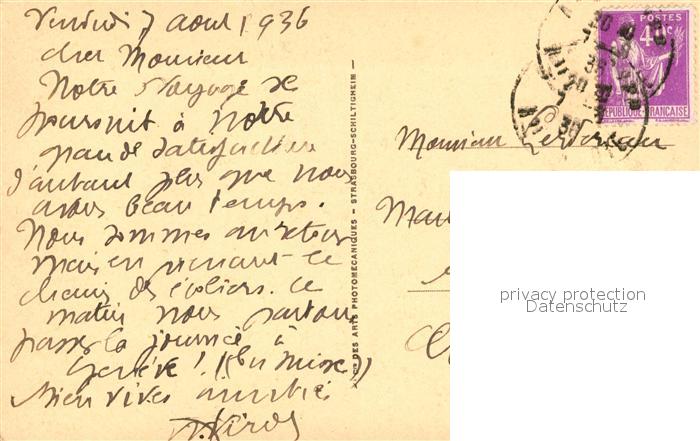 Vendredi 7 aout 1936
cher Monsieur
Notre Voyage se
poursuit à notre
grande satisfaction
d'autant plus que nous
avons beau temps.
Nous sommes au retour
mais en prenant le
chemin des écoliers. Ce
matin nous partons
passer la journée à
Genève! (en Suisse)
Bien vives amitiés
Cie DES ARTS PHOTOMECANIQUES - STRASBOURG-SCHILTIGHEIM -
POSTES
40c
REPUBLIQUE FRANÇAISE
Monsieur
privacy protection
Datenschutz